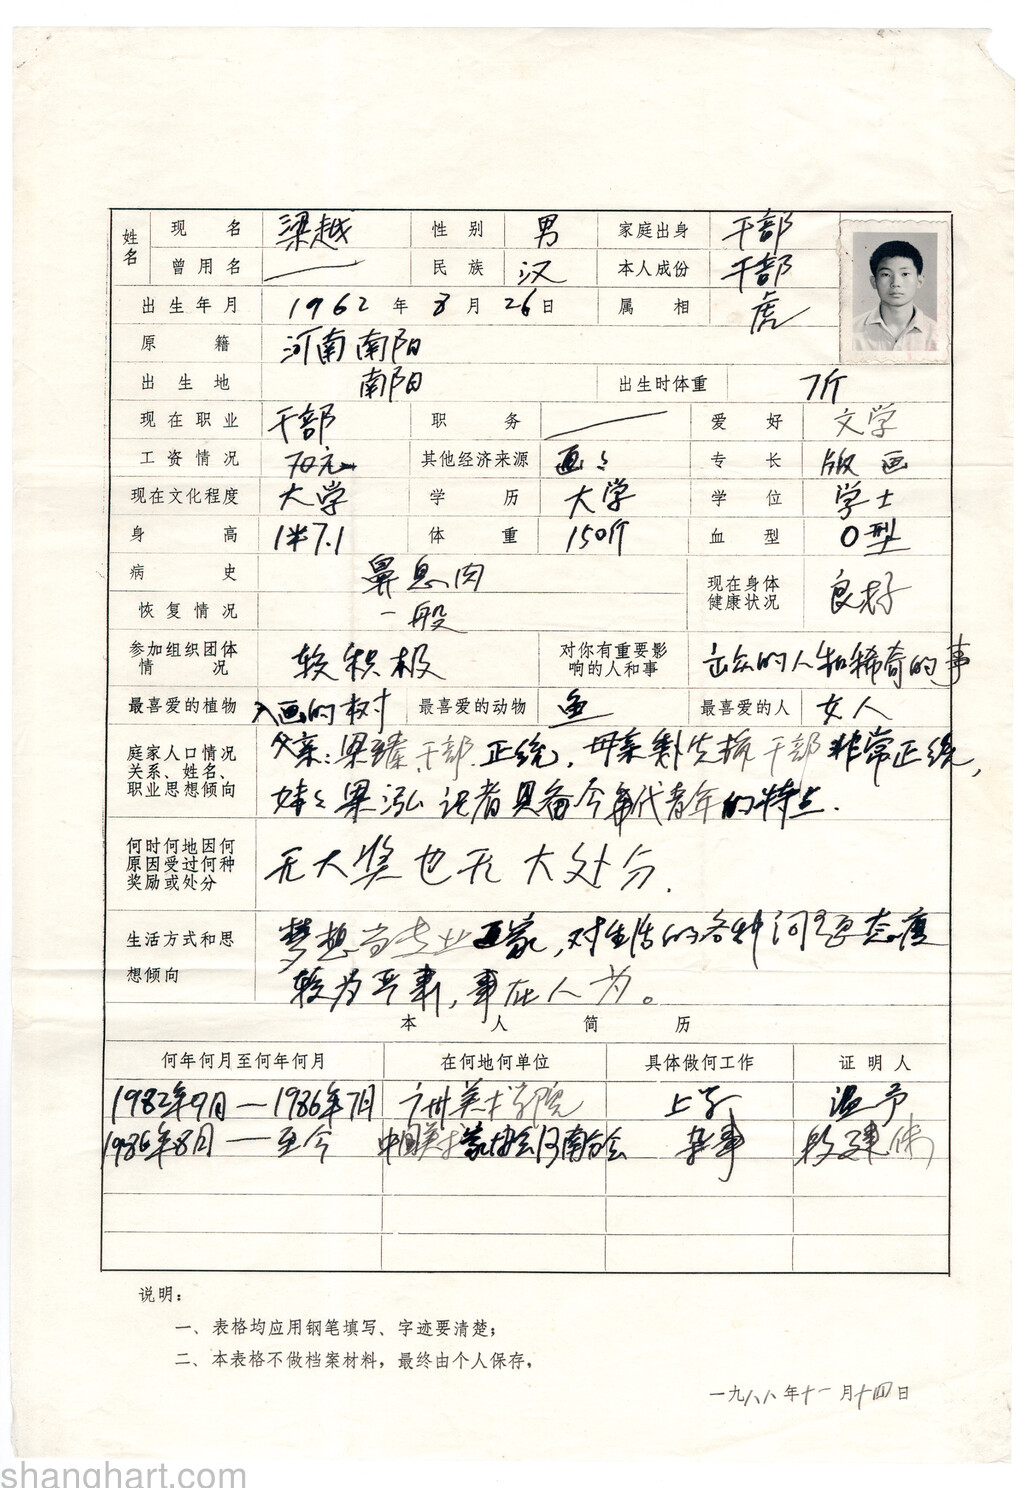 姓名 现名 梁越 性别 男 家庭出身 干部
曾用名 — 民族 汉 本人成份 干部
出生年月 1962年8月26日 属相 虎
原籍 河南南阳
出生地 南阳 出生时体重 7斤
现在职业 干部 职务 — 爱好 文学
工资情况 70元 其他经济来源 画 专长 版画
现在文化程度 大学 学历 大学 学位 学士
身高 1米7.1 体重 150斤 血型 O型
病史 鼻息肉 现在身体健康状况 良好
恢复情况 一般
参加组织团体情况 较积极 对你有重要影响的人和事 出众的人和稀奇的事
最喜爱的植物 入画的树 最喜爱的动物 鱼 最喜爱的人 女人
庭家人口情况
关系、姓名、
职业思想倾向
父亲:梁臻 干部 正统, 母亲 干部 非常正统,
妹妹梁泓 记者具备今年代青年的特点.
何时何地因何
原因受过何种
奖励或处分
无大奖也无大处分.
生活方式和思
想倾向
梦想当专业画家,对生活的各种问题态度
较为严肃,事在人为。
本人简历
何年何月至何年何月 在何地何单位 具体做何工作 证明人
1982年9月—1986年7月 广州美术学院 上学 温予
1986年8月—至今 中国美术家协会河南分会 杂事 段建伟
说明:
一、表格均应用钢笔填写、字迹要清楚;
二、本表格不做档案材料,最终由个人保存,
一九八八年十一月十四日
shanghart.com